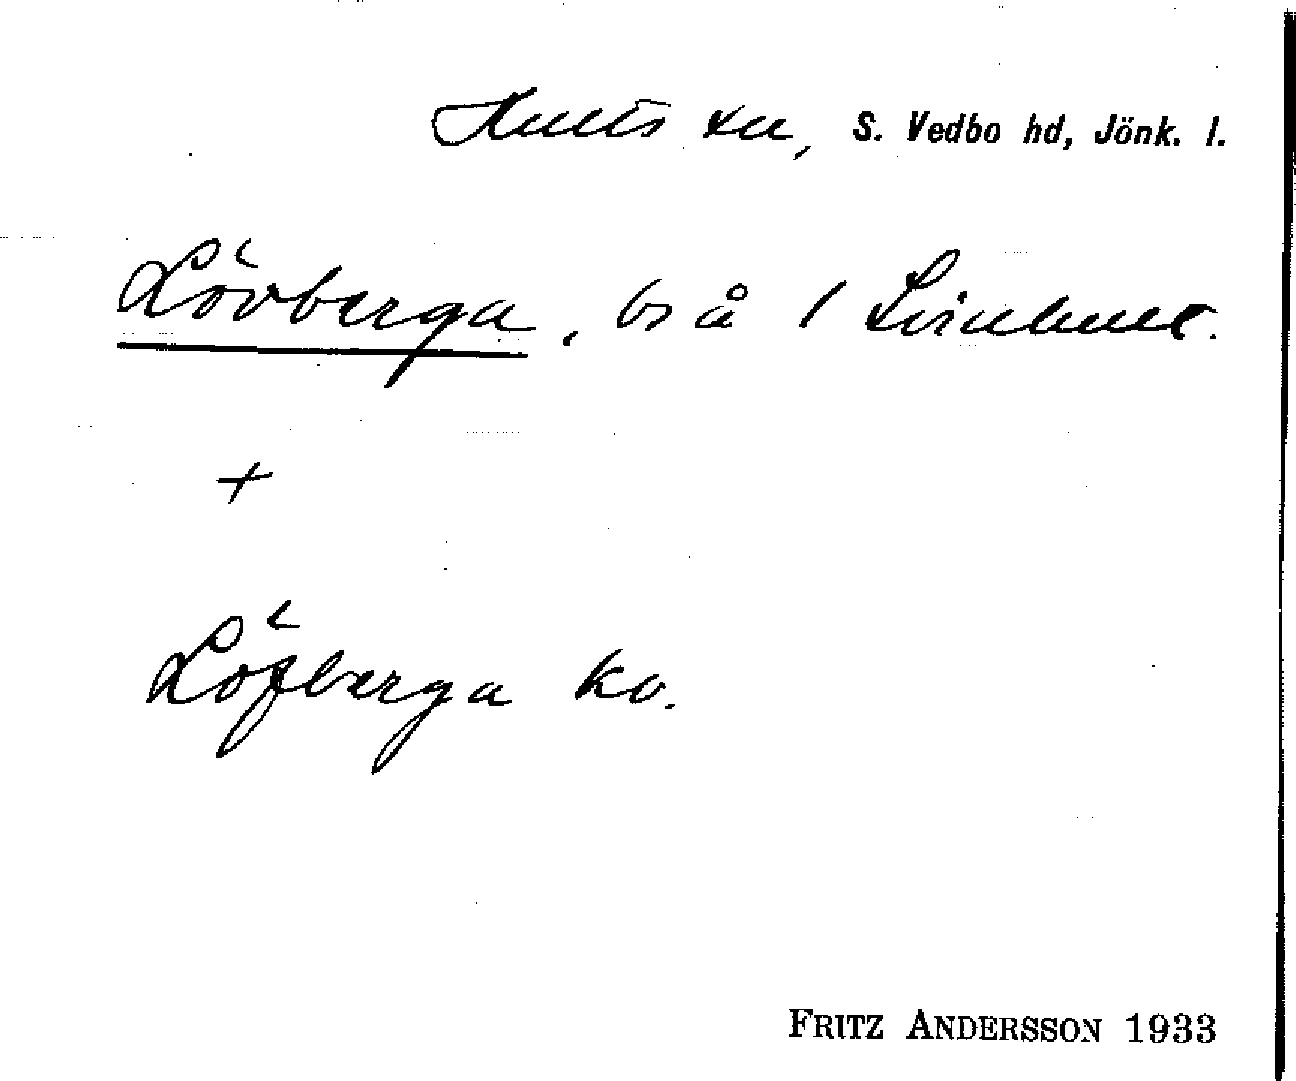 Hults sn, S. Vedbo hd, Jönk. l.
Lövberga, bs å 1 Svinhult.
+
Löfberga ko.
FRITZ ANDERSSON 1933